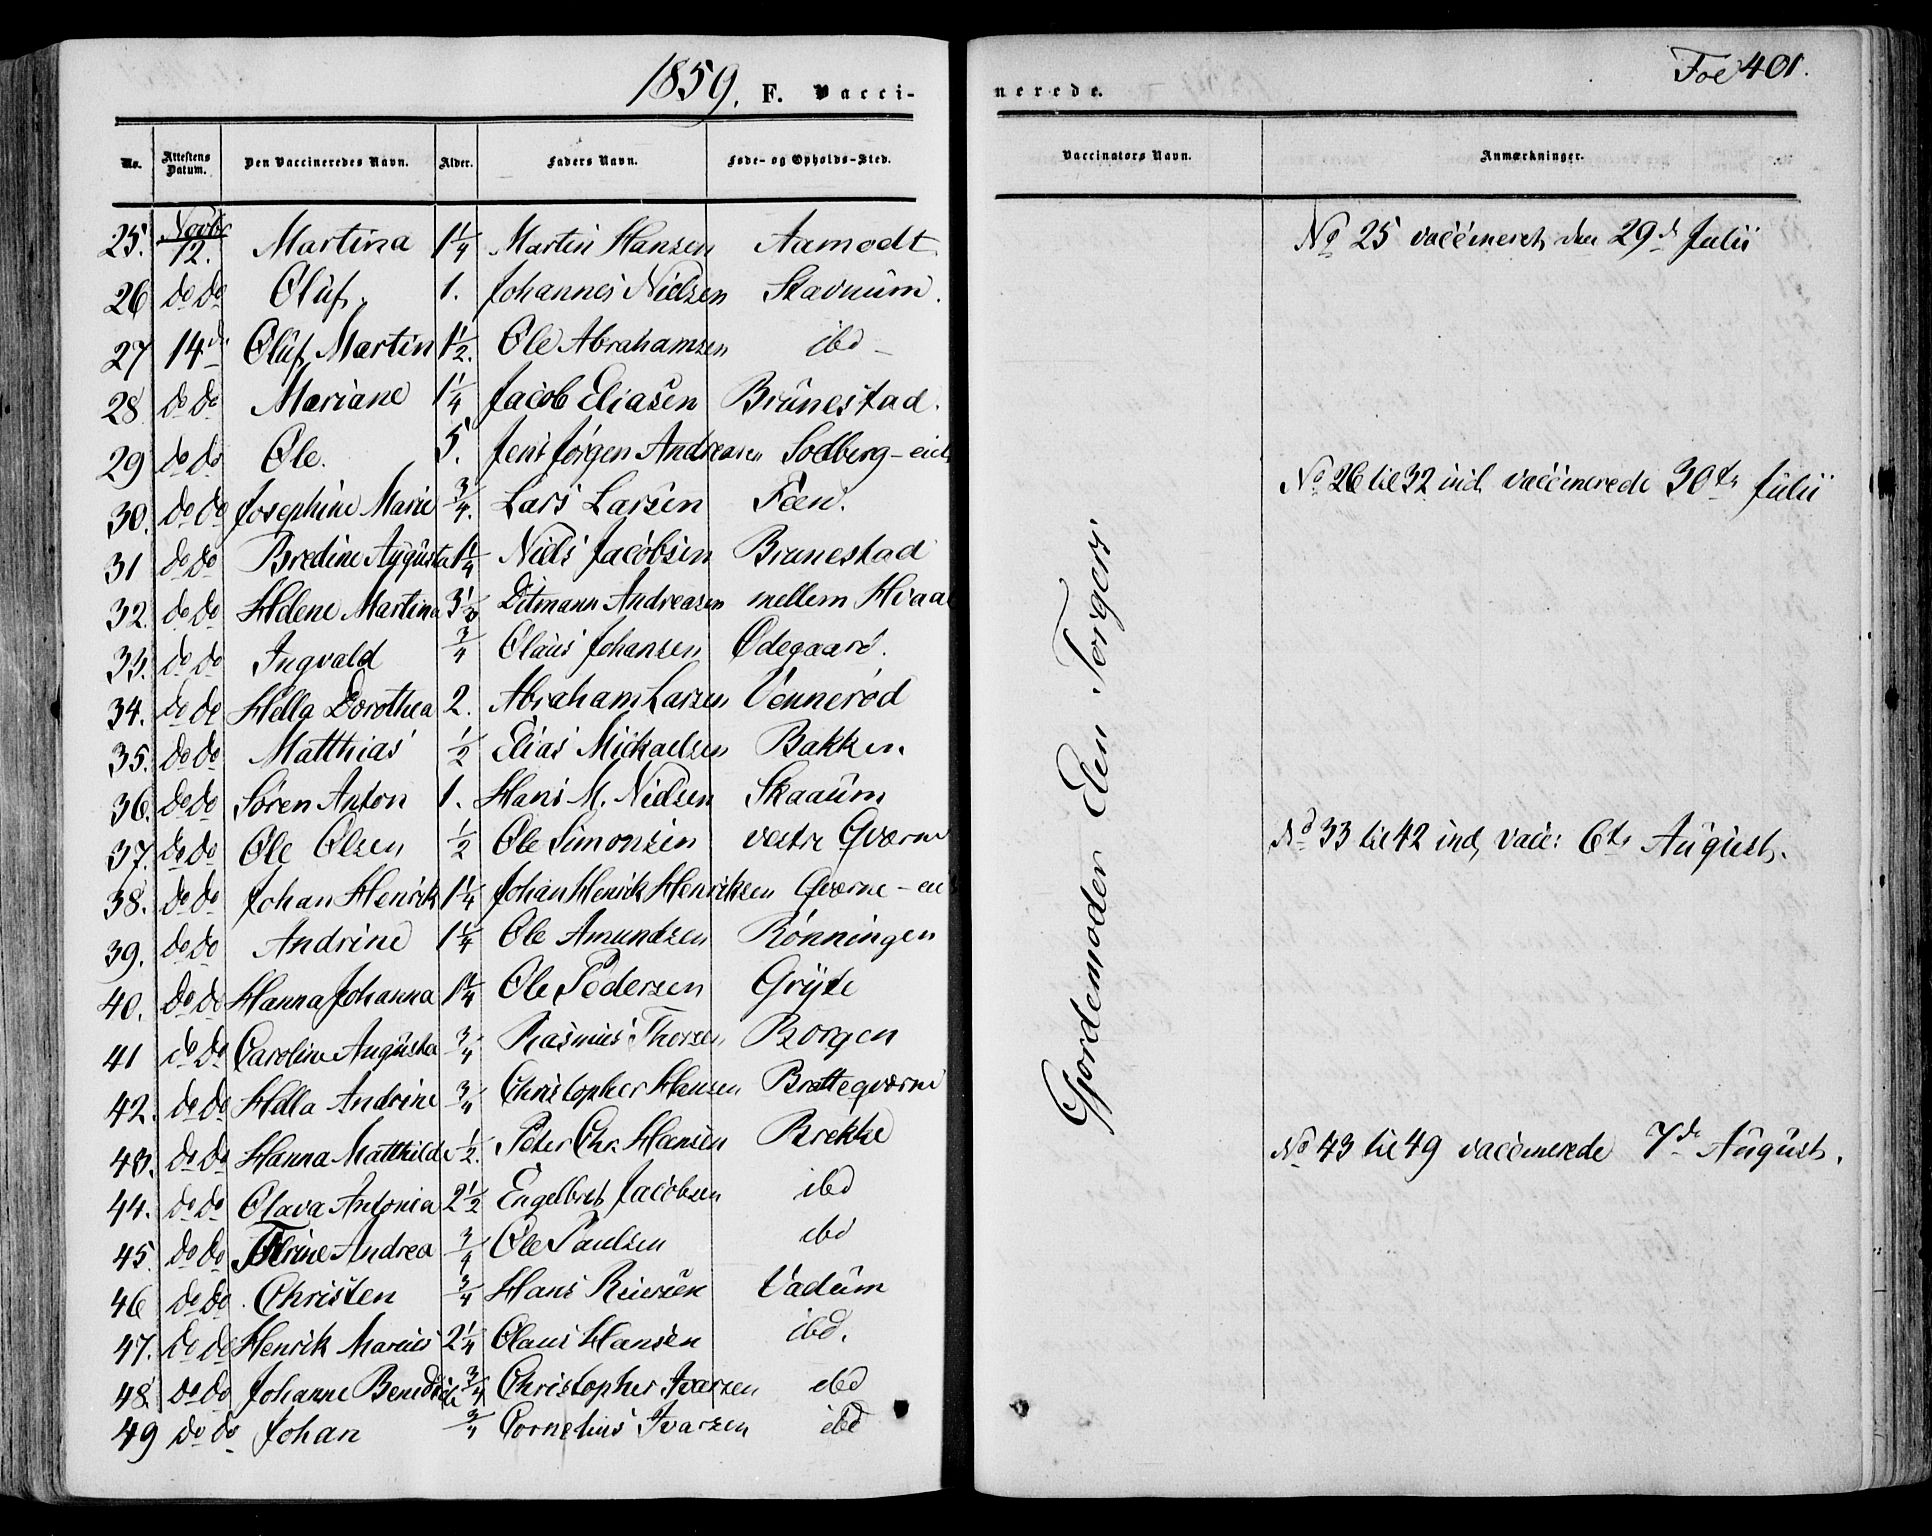 1859. F. Vacci-
No. Attestens Datum. Den Vaccineredes Navn. Alder. Faders Navn. Føde- og Opholds-Sted.
25. Novbr 12. Martina 1 1/4 Martin Hansen Aamodt
26 do do Oluf 1. Johannes Nielsen Skavuum.
27 14de Oluf Martin 1 1/2. Ole Abrahamsen ibd
28 do do Mariane 1 1/4 Jacob Eliasen Brunestad.
29 do do Ole. 5. Jens Jørgen Andreasen Solberg-eie
30. do do Josephine Marie 3/4. Lars Larsen Feen.
31 do do Bredine Augusta 1 1/4 Niels Jacobsen Brunestad
32. do do Helene Martina Ditmann Andreasen mellem
33. do do Ingvald 3/4 Olaus Johansen Ødegaard.
34. do do Hella Dorothea 2. Abraham Larsen Vennerød
35. do do Matthias 1/2 Elias Mickaelsen Bakken
36. do do Søren Anton 1. Hans M. Nielsen Skaaum
37. do do Ole Olsen 1/2 Ole Simonsen vestre Qværne
38. do do Johan Henrik 1 1/4 Johan Henrik Henriksen Qværne-
39. do do Andrine 1 1/4 Ole Amundsen Rønningen
40. do do Hanna Johanna 1 1/4 Ole Pedersen Gryte
41 do do Caroline Augusta 3/4 Rasmus Thorsen Borgen
42. do do Hella Andrine 3/4 Christopher Hansen Bratteqværne
43. do do Hanna Matthilde 1/2. Peter Chr. Hansen Brekke
44. do do Olava Antonia 2 1/2 Engelbret Jacobsen ibd
45. do do Andrea 3/4 Ole Paulsen ibd
46 do do Christen 3/4 Hans Reiersen Vadum
47. do do Henrik Marius 2 1/4 Olaus Hansen ibd.
48. do do Johanne Benedicte 3/4 Christopher Ivarsen ibd
49 do do Johan 3/4 Cornelius Ivarsen ibd
nerede. Fol 401.
Vaccinators Navn. Anmærkninger.
Gjordemoder Elen Torgers
No 25 vaccineret den 29de Julii
No 26 til 32 incl. vaccinerede 30te Julii
No 33 til 42 incl, vacc: 6te August.
No 43 til 49 vaccinerede 7de August.